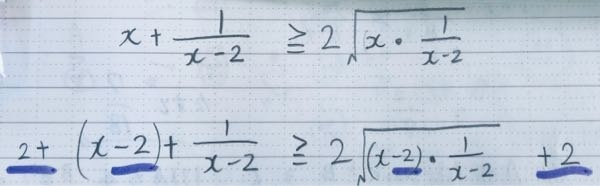 x + 1/(x-2) ≧ 2√(x・1/(x-2))
2 + (x-2) + 1/(x-2) ≧ 2√((x-2)・1/(x-2)) + 2